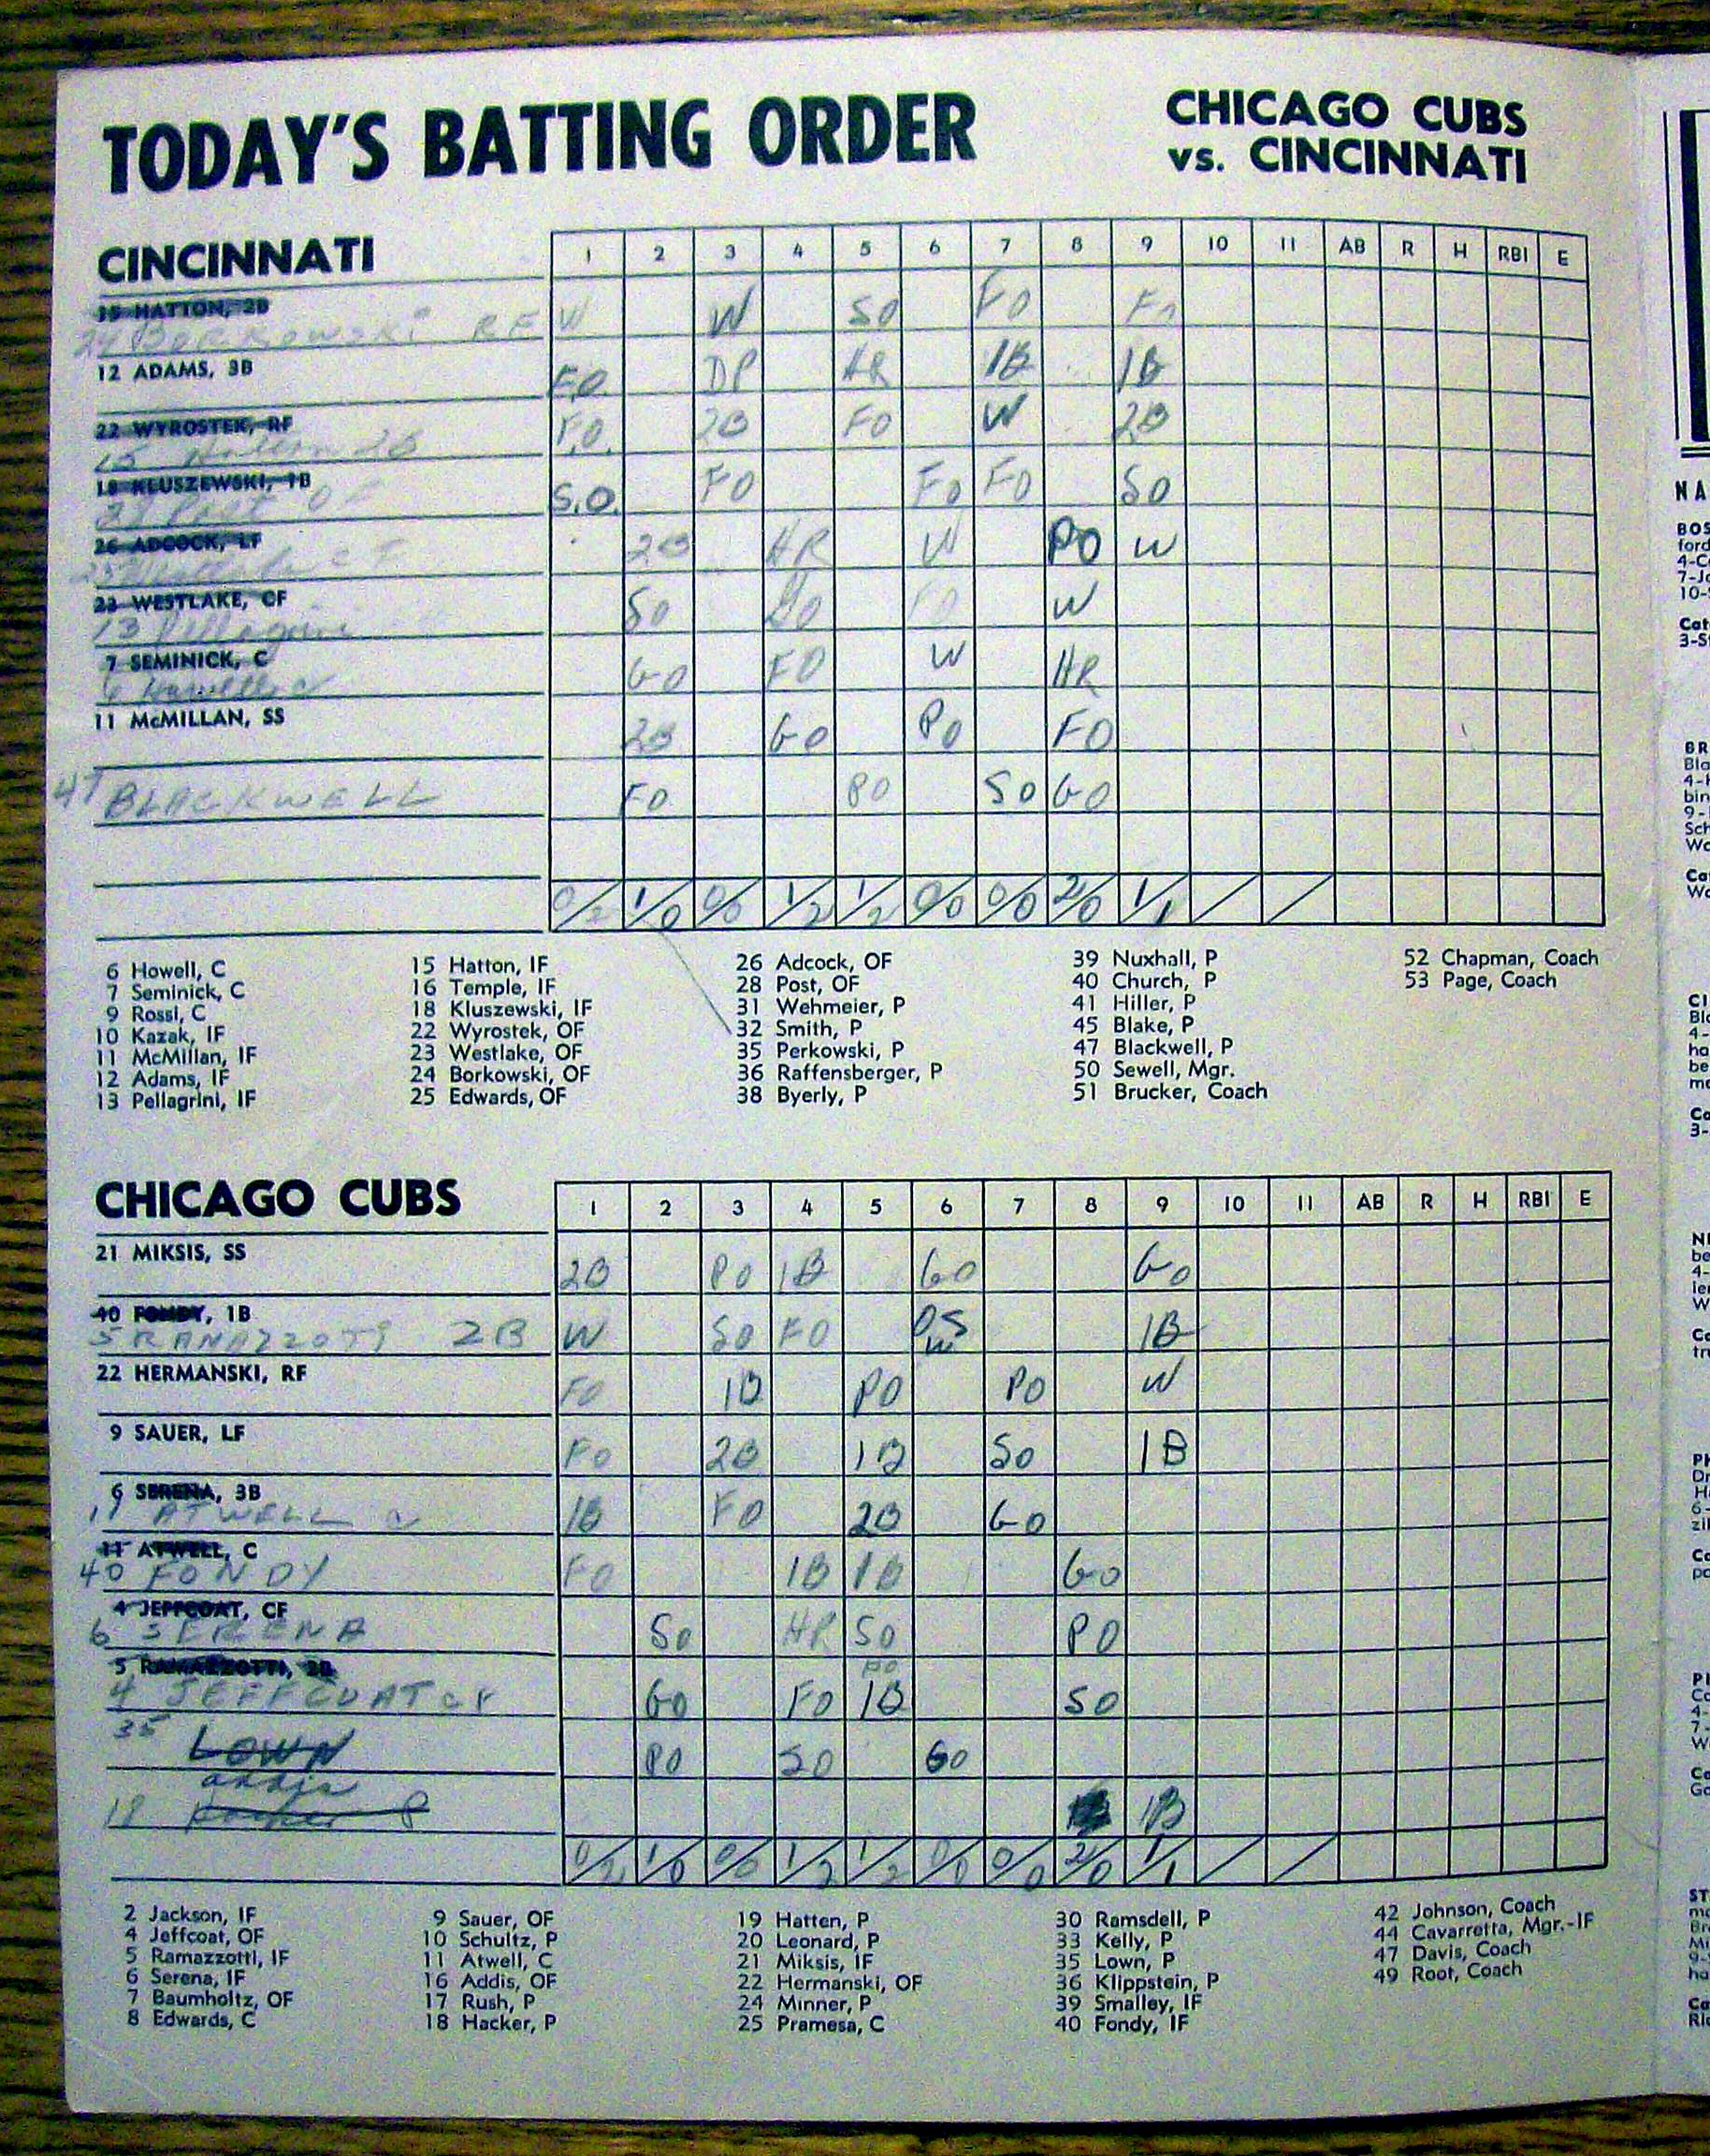 TODAY'S BATTING ORDER
CHICAGO CUBS
vs. CINCINNATI
CINCINNATI 1 2 3 4 5 6 7 8 9 10 11 AB R H RBI E
15 HATTON, 2B
24 Borkowski RF W W SO FO FO
12 ADAMS, 3B F.O. DP HR 1B 1B
22 WYROSTEK, RF
15 Hatton 2B F.O. 2B FO W 2B
18 KLUSZEWSKI, 1B
28 Post OF S.O. FO FO FO SO
26 ADCOCK, LF
23 Westlake CF 2B HR W PO W
23 WESTLAKE, CF
13 Pellagrini SO GO FO W
7 SEMINICK, C
6 Howell C GO FO W HR
11 McMILLAN, SS 2B GO PO FO
47 BLACKWELL FO PO SO GO
0/2 1/0 0/0 1/2 1/2 0/0 0/0 2/0 1/1
6 Howell, C 15 Hatton, IF 26 Adcock, OF 39 Nuxhall, P 52 Chapman, Coach
7 Seminick, C 16 Temple, IF 28 Post, OF 40 Church, P 53 Page, Coach
9 Rossi, C 18 Kluszewski, IF 31 Wehmeier, P 41 Hiller, P
10 Kazak, IF 22 Wyrostek, OF 32 Smith, P 45 Blake, P
11 McMillan, IF 23 Westlake, OF 35 Perkowski, P 47 Blackwell, P
12 Adams, IF 24 Borkowski, OF 36 Raffensberger, P 50 Sewell, Mgr.
13 Pellagrini, IF 25 Edwards, OF 38 Byerly, P 51 Brucker, Coach
CHICAGO CUBS 1 2 3 4 5 6 7 8 9 10 11 AB R H RBI E
21 MIKSIS, SS 2B PO 1B GO GO
40 FONDY, 1B
5 RAMAZZOTI 2B W SO FO W 1B
22 HERMANSKI, RF FO 1B PO PO W
9 SAUER, LF FO 2B 1B SO 1B
6 SERENA, 3B
11 ATWELL C 1B FO 2B GO
11 ATWELL, C
40 FONDY FO 1B 1B GO
4 JEFFCOAT, CF
6 SERENA SO HR SO PO
5 RAMAZZOTTI, 2B
4 JEFFCOAT CF GO FO 1B SO
35 LOWN PO SO GO
addis
18 Hacker P 1B
0/2 1/0 0/0 1/2 1/2 0/0 0/0 2/0 1/1
2 Jackson, IF 9 Sauer, OF 19 Hatten, P 30 Ramsdell, P 42 Johnson, Coach
4 Jeffcoat, OF 10 Schultz, P 20 Leonard, P 33 Kelly, P 44 Cavarretta, Mgr.-IF
5 Ramazzotti, IF 11 Atwell, C 21 Miksis, IF 35 Lown, P 47 Davis, Coach
6 Serena, IF 16 Addis, OF 22 Hermanski, OF 36 Klippstein, P 49 Root, Coach
7 Baumholtz, OF 17 Rush, P 24 Minner, P 39 Smalley, IF
8 Edwards, C 18 Hacker, P 25 Pramesa, C 40 Fondy, IF